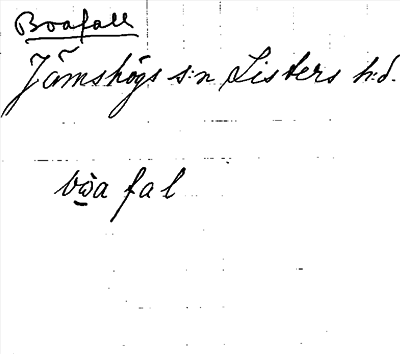 Boafall
Jämshögs s:n Listers h:d.
bẁ̲a fal